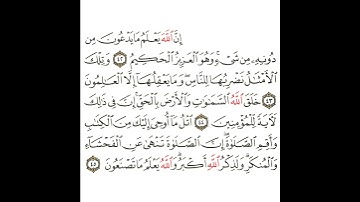 إِنَّ ٱللَّهَ يَعْلَمُ مَا يَدْعُونَ مِن
دُونِهِۦ مِن شَىْءٍۢ ۚ وَهُوَ ٱلْعَزِيزُ ٱلْحَكِيمُ ٤٢ وَتِلْكَ
ٱلْأَمْثَٰلُ نَضْرِبُهَا لِلنَّاسِ ۖ وَمَا يَعْقِلُهَآ إِلَّا ٱلْعَٰلِمُونَ
٤٣ خَلَقَ ٱللَّهُ ٱلسَّمَٰوَٰتِ وَٱلْأَرْضَ بِٱلْحَقِّ ۚ إِنَّ فِى ذَٰلِكَ
لَءَايَةًۭ لِّلْمُؤْمِنِينَ ٤٤ ٱتْلُ مَآ أُوحِىَ إِلَيْكَ مِنَ ٱلْكِتَٰبِ
وَأَقِمِ ٱلصَّلَوٰةَ ۖ إِنَّ ٱلصَّلَوٰةَ تَنْهَىٰ عَنِ ٱلْفَحْشَآءِ
وَٱلْمُنكَرِ ۗ وَلَذِكْرُ ٱللَّهِ أَكْبَرُ ۗ وَٱللَّهُ يَعْلَمُ مَا تَصْنَعُونَ ٤٥